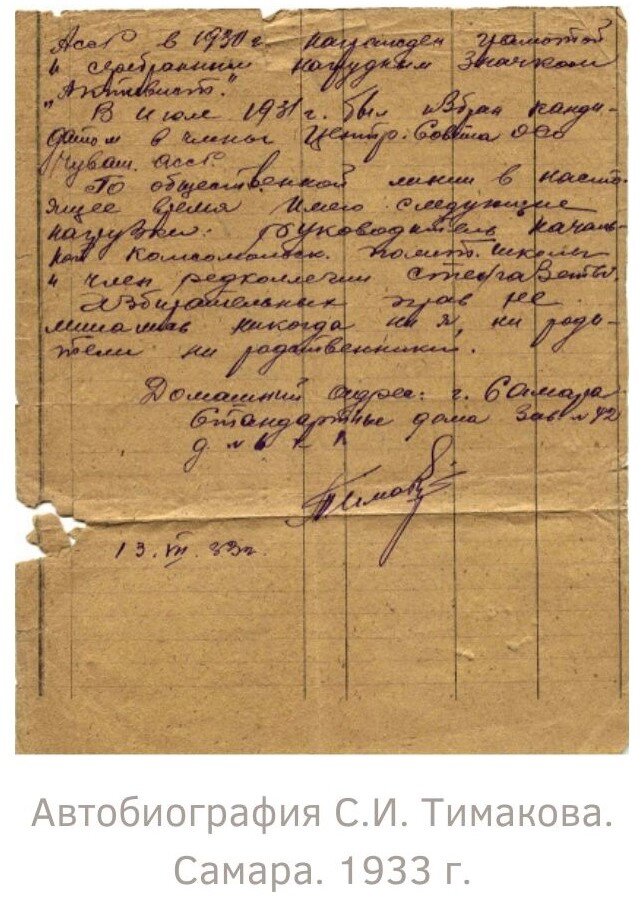 АссР в 1930 г. награжден грамотой
и серебрянным нагрудным значком
"Активист."
В июле 1931 г. был избран канди-
датом в члены Центр. Совета ОАО
Чуваш. АссР.
По обществ.енной линии в насто-
ящее время имею следующие
нагрузки: Руководитель началь-
ной комсомольск. полит. школы
и член редколлегии стенгазеты.
Избирательных прав не
лишались никогда ни я, ни роди-
тели ни родственники.
Домашний адрес: г. Самара
Стандартные дома Зав № 42
д. № 6 к 1
Тимаков
13. VII. 33 г.
Автобиография С.И. Тимакова.
Самара. 1933 г.